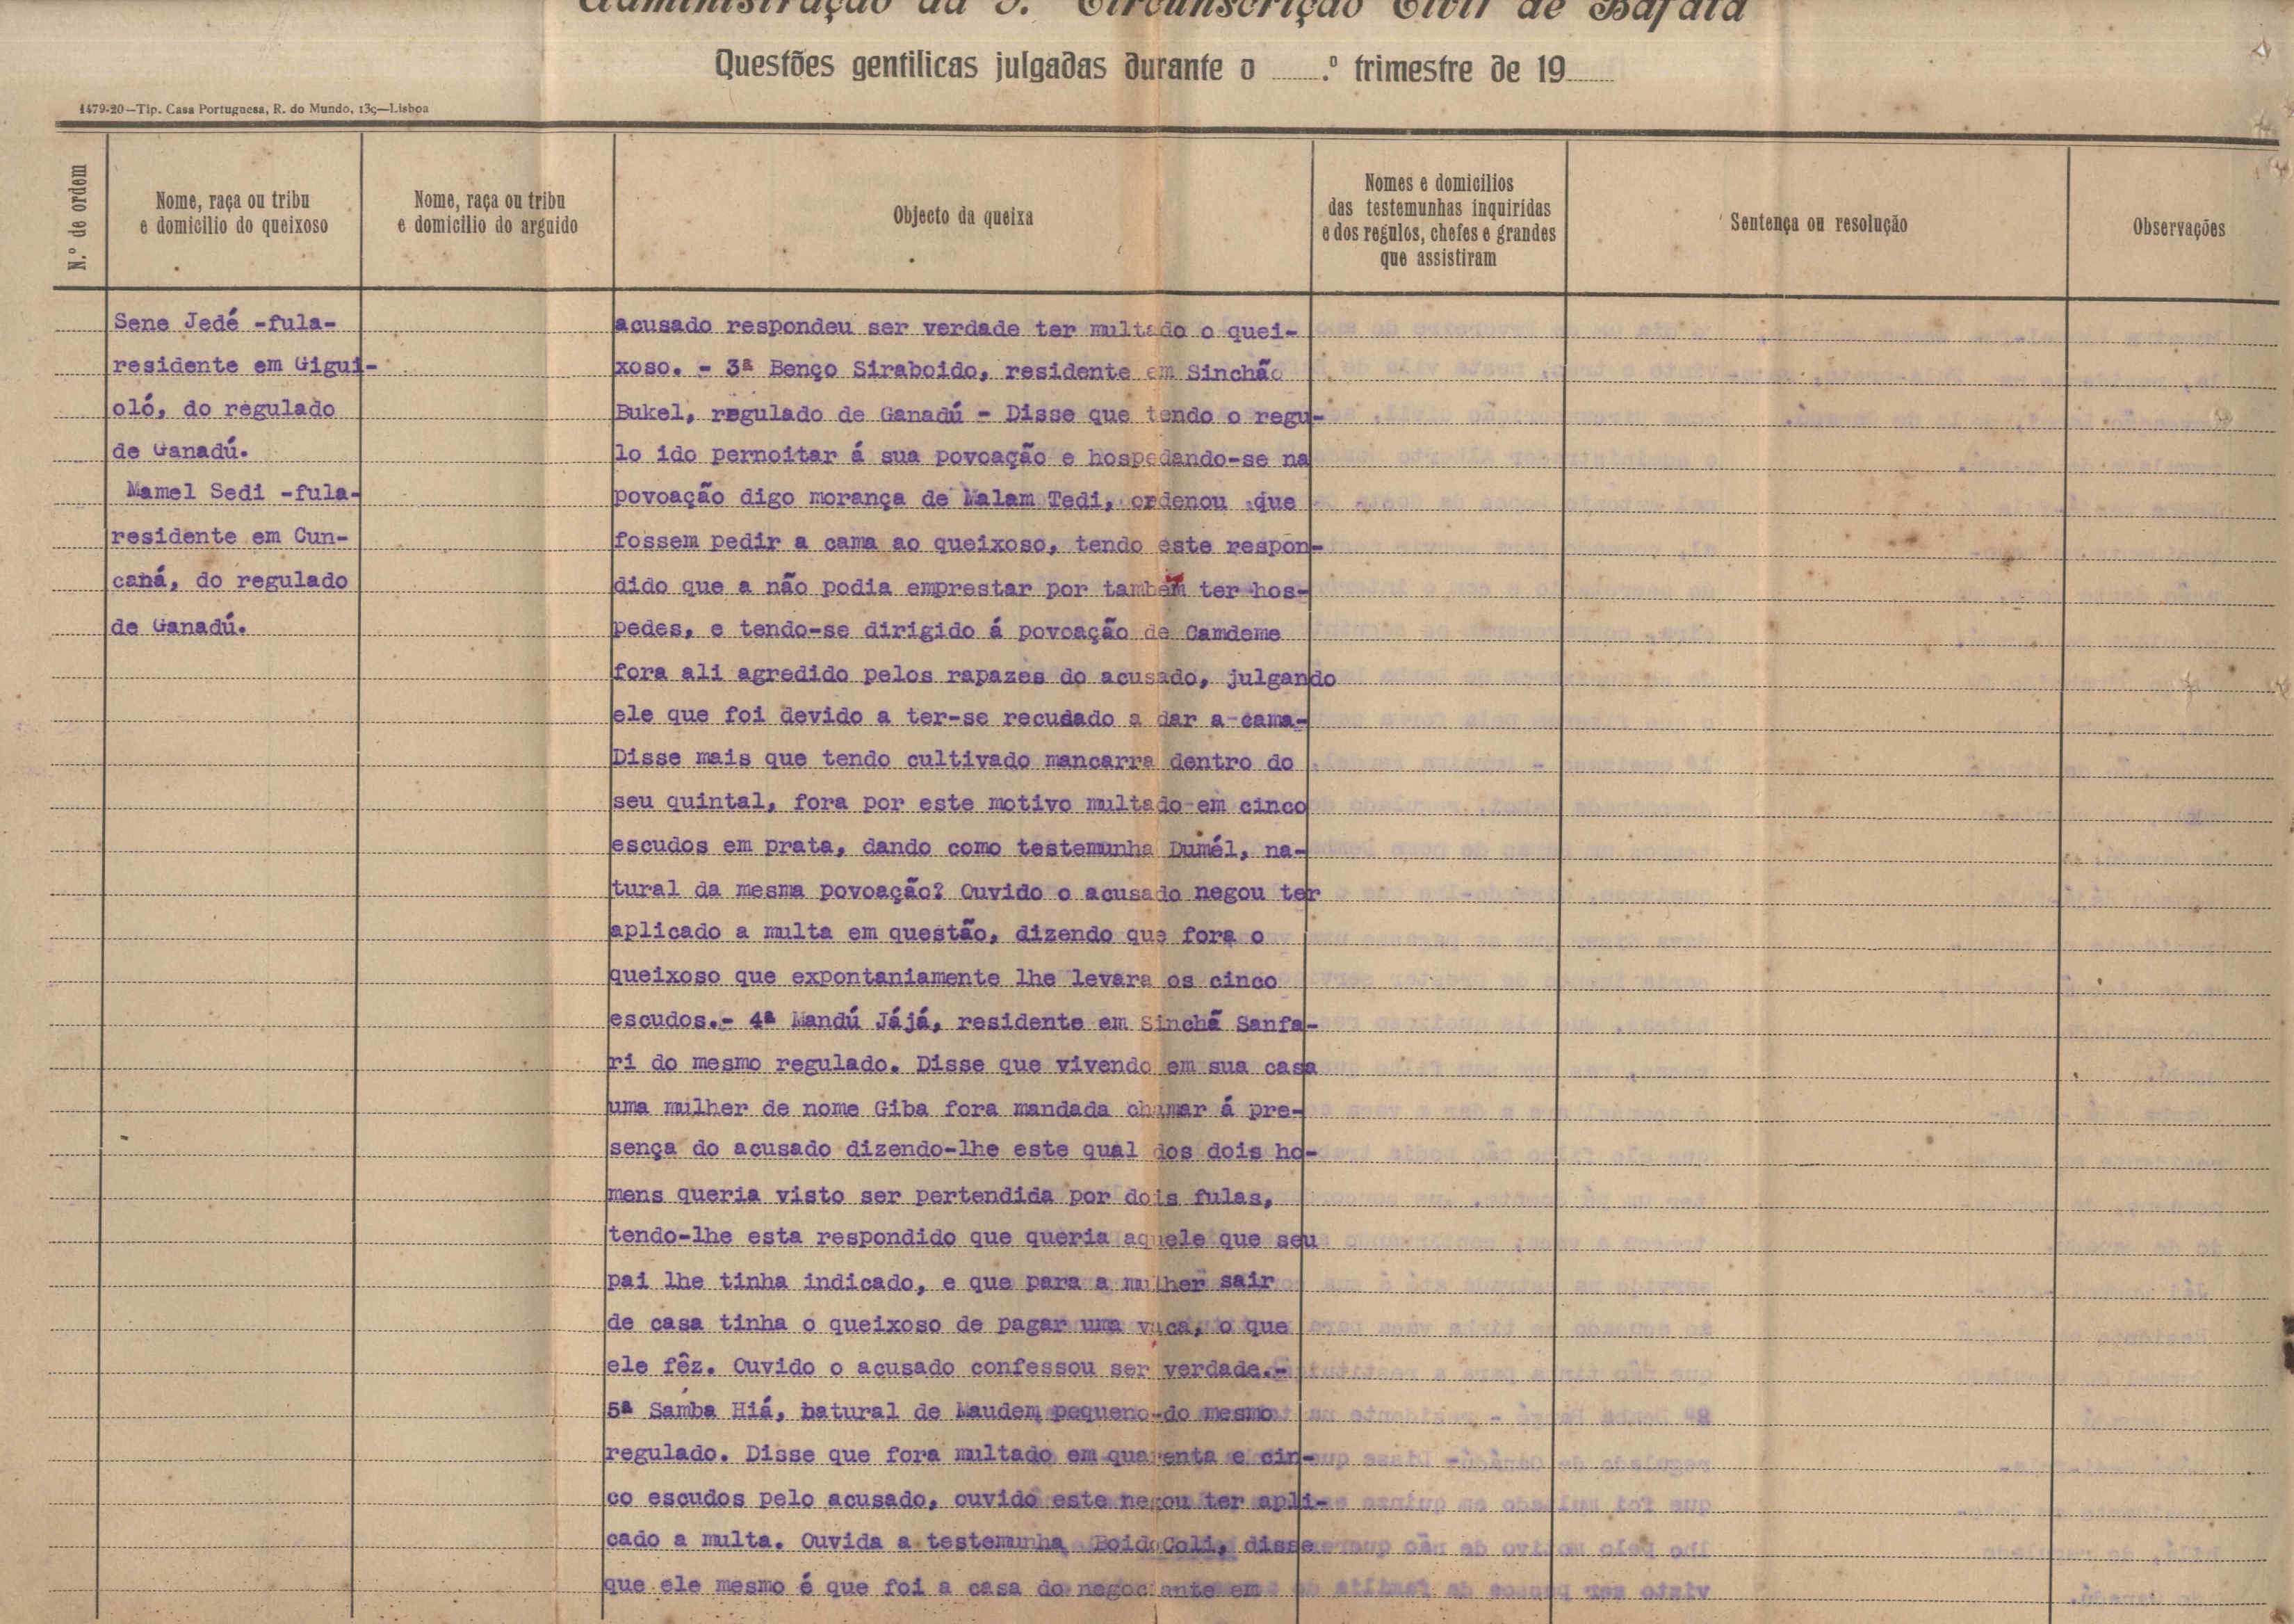 Administração da 3.ª Circunscrição Civil de Bafatá
Questões gentilicas julgadas durante o .º trimestre de 19
1479-20—Tip. Casa Portuguesa, R. do Mundo, 139—Lisboa
N.º de ordem
Nome, raça ou tribu
e domicilio do queixoso
Nome, raça ou tribu
e domicilio do arguido
Objecto da queixa
Nomes e domicilios
das testemunhas inquiridas
e dos regulos, chefes e grandes
que assistiram
Sentença ou resolução
Observações
Sene Jedé -fula-
residente em Gigui-
oló, do regulado
de Ganadú.
Mamel Sedi -fula-
residente em Cun-
caná, do regulado
de Ganadú.
acusado respondeu ser verdade ter multado o quei-
xoso. - 3ª Benço Siraboido, residente em Sinchão
Bukel, regulado de Ganadú - Disse que tendo o regu-
lo ido pernoitar á sua povoação e hospedando-se na
povoação digo morança de Malam Tedi, ordenou que
fossem pedir a cama ao queixoso, tendo este respon-
dido que a não podia emprestar por tambem ter hos-
pedes, e tendo-se dirigido á povoação de Camdeme
fora ali agredido pelos rapazes do acusado, julgando
ele que foi devido a ter-se recusado a dar a cama-
Disse mais que tendo cultivado mancarra dentro do
seu quintal, fora por este motivo multado em cinco
escudos em prata, dando como testemunha Dumél, na-
tural da mesma povoação? Ouvido o acusado negou ter
aplicado a multa em questão, dizendo que fora o
queixoso que expontaniamente lhe levara os cinco
escudos.- 4ª Mandú Jájá, residente em Sinchã Sanfa-
ri do mesmo regulado. Disse que vivendo em sua casa
uma mulher de nome Giba fora mandada chamar á pre-
sença do acusado dizendo-lhe este qual dos dois ho-
mens queria visto ser pertendida por dois fulas,
tendo-lhe esta respondido que queria aquele que seu
pai lhe tinha indicado, e que para a mulher sair
de casa tinha o queixoso de pagar uma vaca, o que
ele fêz. Ouvido o acusado confessou ser verdade.-
5ª Samba Hiá, batural de Maudem pequeno do mesmo
regulado. Disse que fora multado em quarenta e cin-
co escudos pelo acusado, ouvido este negou ter apli-
cado a multa. Ouvida a testemunha Boido Coli, disse
que ele mesmo é que foi a casa do negociante em